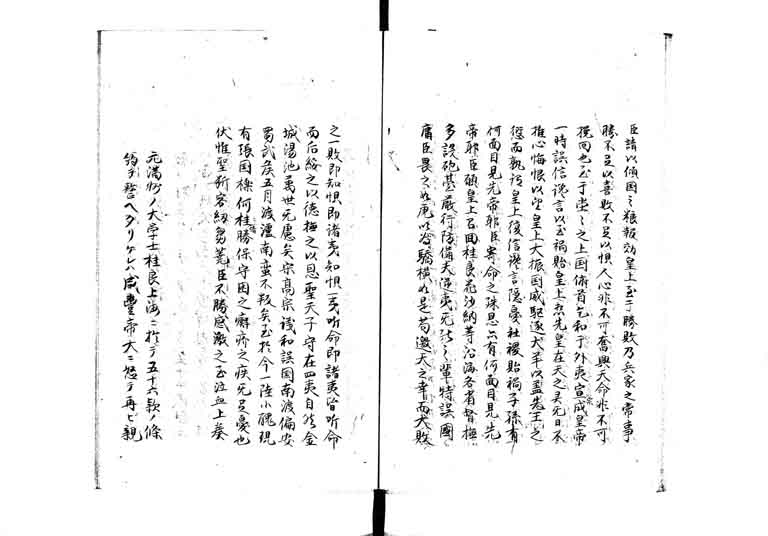 臣請以傾国之粮報効皇上至于勝敗乃兵家之常事
勝不足以喜敗不足以惧人心非不可奮興天命非不可
挽回也至于堂々之上国俯首乞和于外夷宣成皇帝
一時誤信讒言以至禍貽皇上想先皇在天之灵无日不
推心悔恨以望皇上大振国威駆逐犬羊以盖先王之
愆而孰謂皇上復信讒言隠憂社稷貽禍子孫有
何面目見先帝耶臣受寄命之殊恩亦有何面目見先
帝耶臣願皇上召回桂良花沙納等沿海各省督撫
多設砲臺厳行防備夫逆夷无能之輩特誤国
庸臣畏之如虎以啓驕横如是苟邀天之幸而犬敗
之一敗即知惧即諸夷知惧一夷听命即諸夷皆听命
而后綏之以徳撫之以恩聖天子守在四夷自然金
城湯池萬世无慮矣宋高宗議和誤国南渡偏安
蜀武侯五月渡瀘南蛮不叛矣至於今一陸小醜現
有張国樑何桂勝保守困之癬疥之疾死足憂也
伏惟聖祈容納芻荛臣不勝感激之至泣血上奏
元満州ノ大学士桂良上海ニ於テ五十六款ノ條
約ヲ誓ヘタリケレハ咸豊帝大ニ怒テ再ヒ親